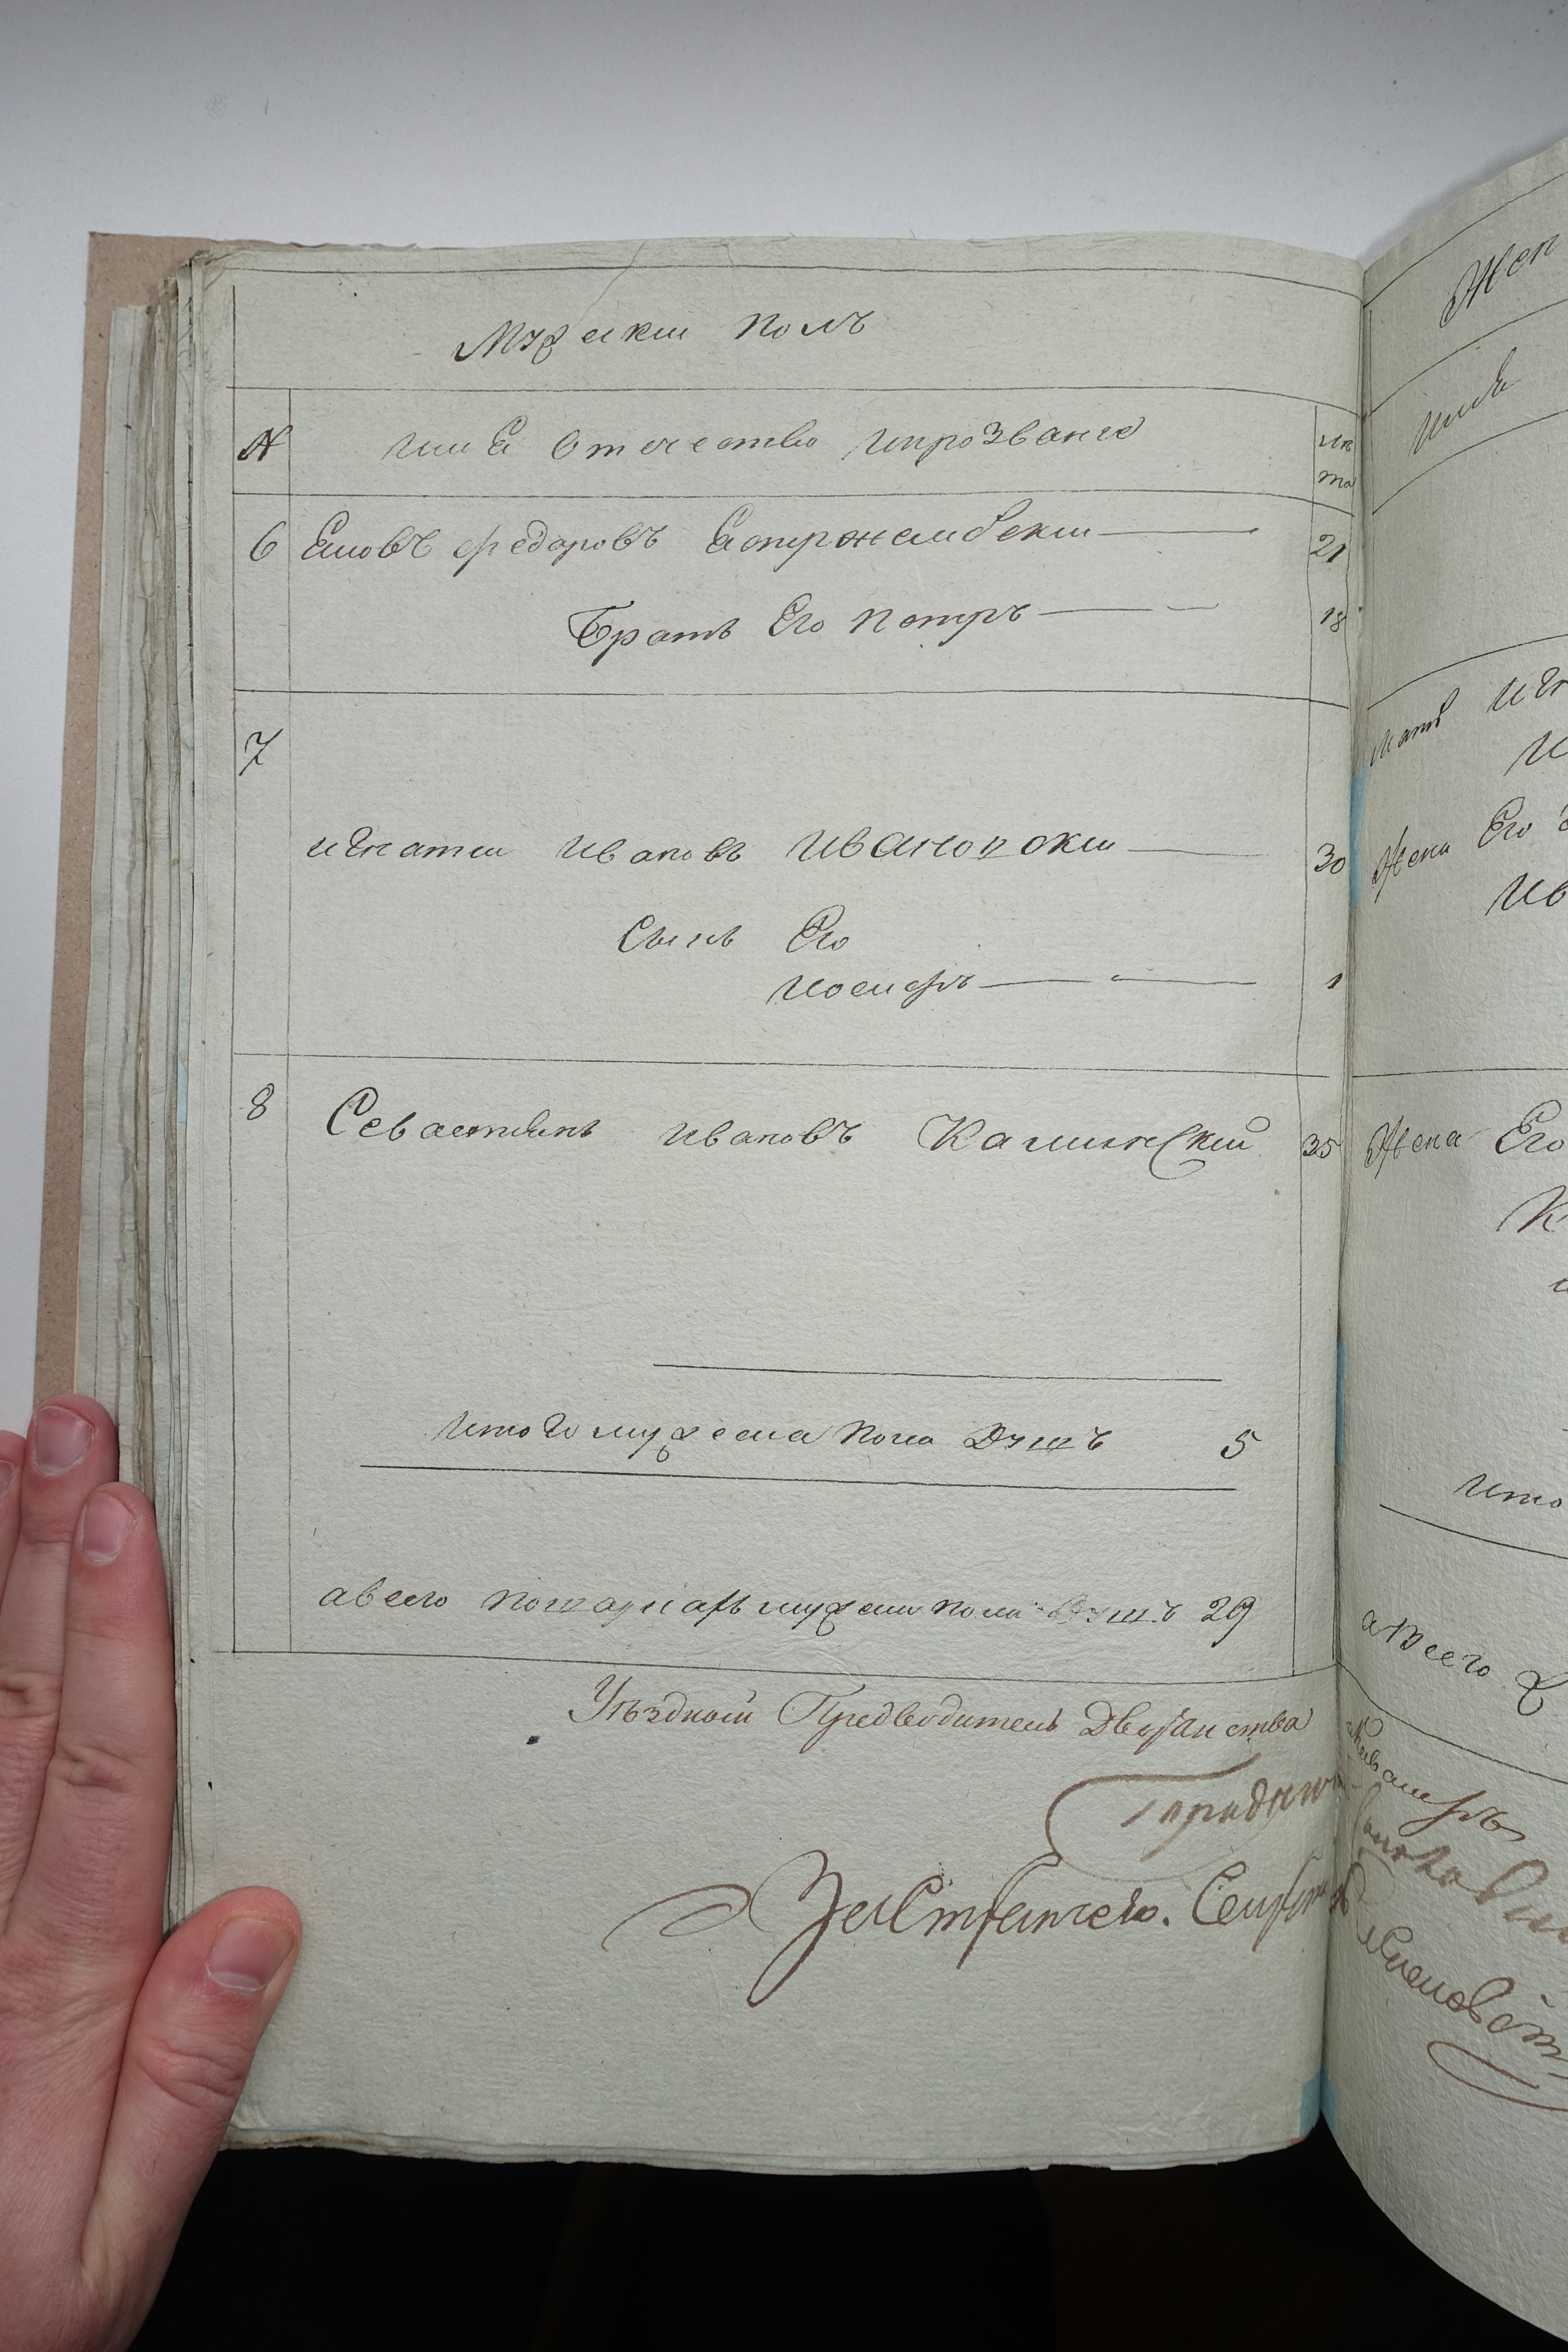 Мужески полъ
№ имѧ Отечество ипрозвание ле та
6 Еиовъ федоровъ Ястржембски 21
Братъ Его петръ 18
7
игнатеи Ивановъ Ивановски 30
Сынъ Его
иосифъ 1
8 Севастиянъ Ивановъ Калинский 35
Итого мужеска пола Душъ 5
авсего мужеска пола Душъ 29
Уѣздной Предводитель Дворянства
Жен
имѧ
мать Иг
И
Жена Его
Ив
Жена Его
К
Ито
а всего
Кавалеръ